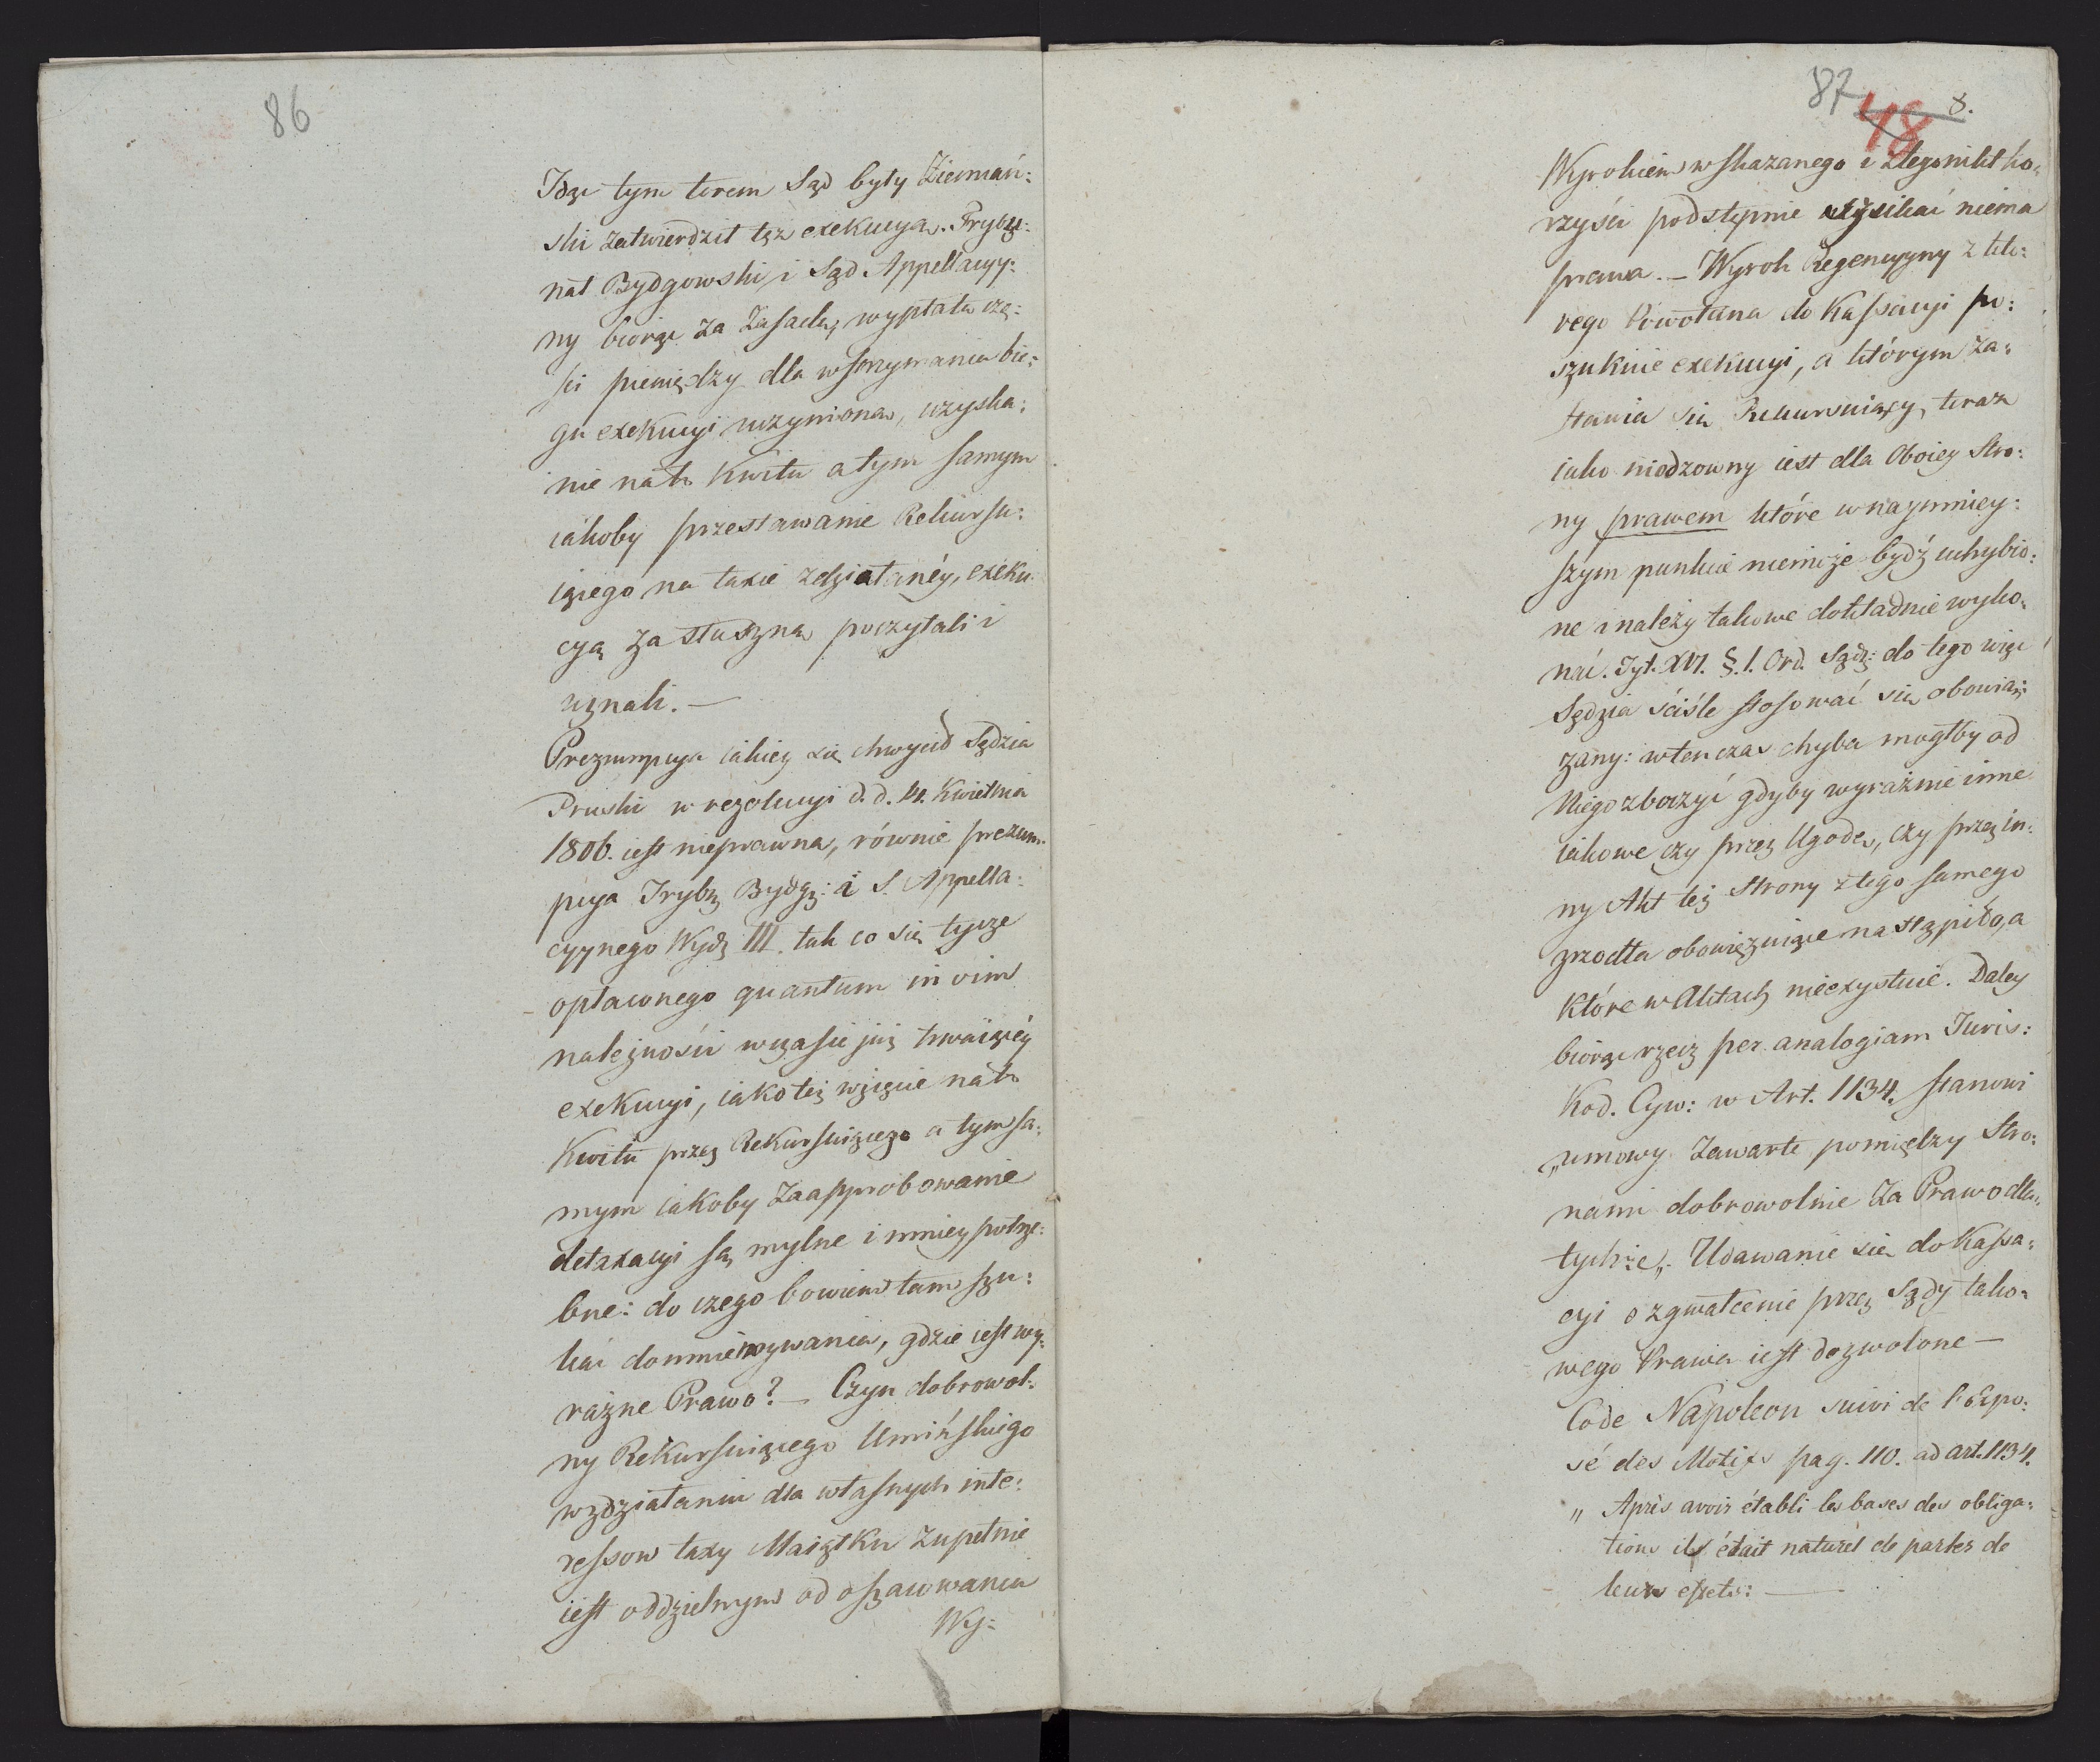 86
Idąc tym torem Sąd były Ziemiań:
ski zatwierdził tęż exekucyą. Trybu:
nał Bydgowski i Sąd Appellacyy:
ny biorąc za zasadę wypłatę czę:
ści pieniędzy dla wstrzymania bie:
gu exekucyi uczynioną, uzyska:
nie nań Kwitu a tym samym
iakoby przestawanie Rekursu:
iącego na taxie zdziałanéy, exeku
cyą za słuszną poczytali i
uznali. —
Prezumpcya iakiey się chwycił Sędzia
Pruski w rezolucyi d. d. 14. Kwietnia
1806. iest nieprawna, równie prezum:
pcya Trybu Bydg: i S. Appella:
cyynego Wydz III. tak co się tycze
opłaconego quantum in vim
należności w czasie już trwaiącéy
exekucyi, iako też wzięcie nań
Kwitu przez Rekursuiącego a tym sa:
mym iakoby zaapprobowanie
detaxacyi są mylne i mniey potrze:
bne: do czego bowiem tam szu:
kać domniemywania, gdzie iest wy:
raźne Prawo? — Czyn dobrowol:
ny Rekursuiącego Umińskiego
w zdziałaniu dla własnych inte:
ressow taxy Maiątku zupełnie
iest oddzielnym od oszacowania
Wy:
87
48
8.
Wyrokiem wskazanego i z tego nikt ko:
rzyści podstępnie uzyskać niema
prawa. — Wyrok Regencyyny z któ:
rego Powołana do Kassacyi po:
szukuie exekucyi, a którym za:
stawia się Rekursuiący, teraz
iako niodzowny iest dla Oboiey Stro:
ny prawem które w naymniey:
szym punkcie niemoże bydź uchybio:
ne i należy takowe dokładnie wyko:
nać. Tyt. XVI. §. 1. Ord. Sądz: do tego więc
Sędzia ściśle stosować się obowią:
zany: wtenczas chyba mógłby od
Niego zboczyć gdyby wyraźnie inne
iakowe czy przez Ugodę, czy przez in:
ny Akt téż Strony z tego samego
zrzodła obowięzuiące nastąpiło, a
które w Aktach nieexystuie. Daley
biorąc rzecz per analogiam Juris:
Kod. Cyw: w Art. 1134. stanowi
„umowy zawarte pomiędzy Stro:
nami dobrowolnie za Prawo dla
tychże„. Udawanie się do Kassa:
cyi o zgwałcenie przez Sądy tako:
wego Prawa iest dozwolone —
Code Napoleon suivi de l'Expo:
sé des Motifs pag. 110. ad art. 1134.
„ Après avoir établi les bases des obliga:
tions il était naturel de parler de
leurs effets: —